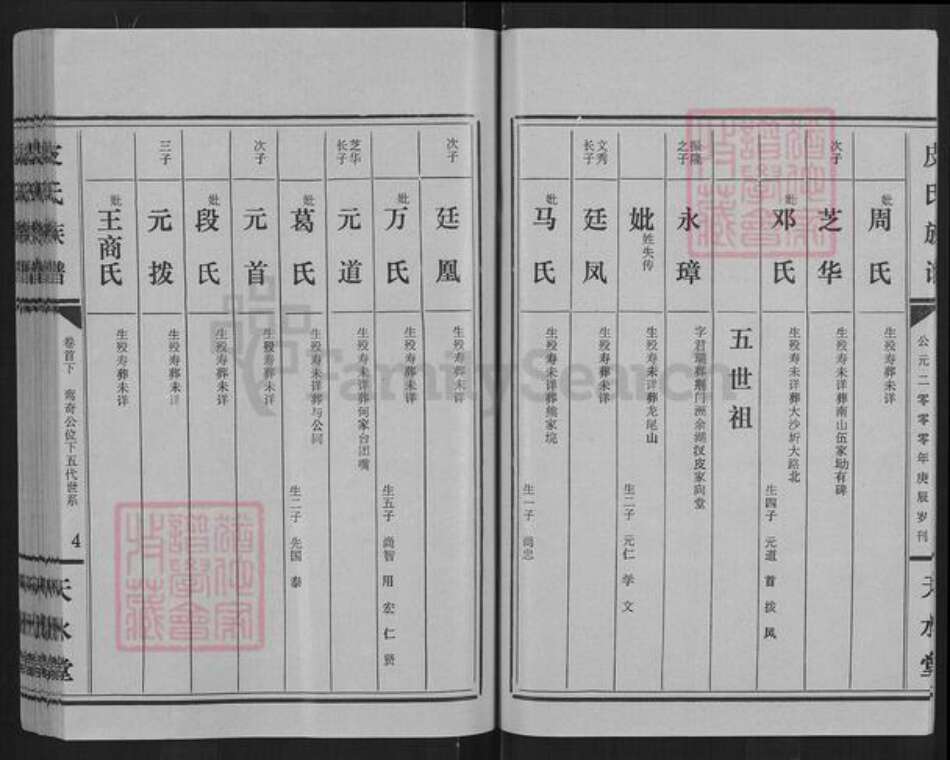 皮氏族谱
公元二零零零年庚辰岁刊
天水堂
妣周氏
生殁寿葬未详
次子
芝华
生殁寿未详葬南山伍家坳有碑
妣邓氏
生殁寿未详葬大沙圻大路北
生四子 元道 首 拨 凤
五世祖
振隆之子
永璋
字君瑞葬荆门洲余湖汊皮家向堂
妣姓失传
生殁寿未详葬龙尾山
生二子 元仁 学文
文秀长子
廷凤
生殁寿葬未详
妣马氏
生殁寿未详葬熊家垸
生一子 尚忠
次子
廷凰
生殁寿葬未详
妣万氏
生殁寿葬未详
生五子 尚智 用 宏 仁 贤
芝华长子
元道
生殁寿未详葬何家台团嘴
妣葛氏
生殁寿未详葬与公同
生二子 先国 泰
次子
元首
生殁寿葬未详
妣段氏
生殁寿葬未详
三子
元拨
生殁寿葬未详
妣王商氏
生殁寿葬未详
皮氏族谱
卷首下 鸾奇公位下五代世系
4
天水堂
FamilySearch